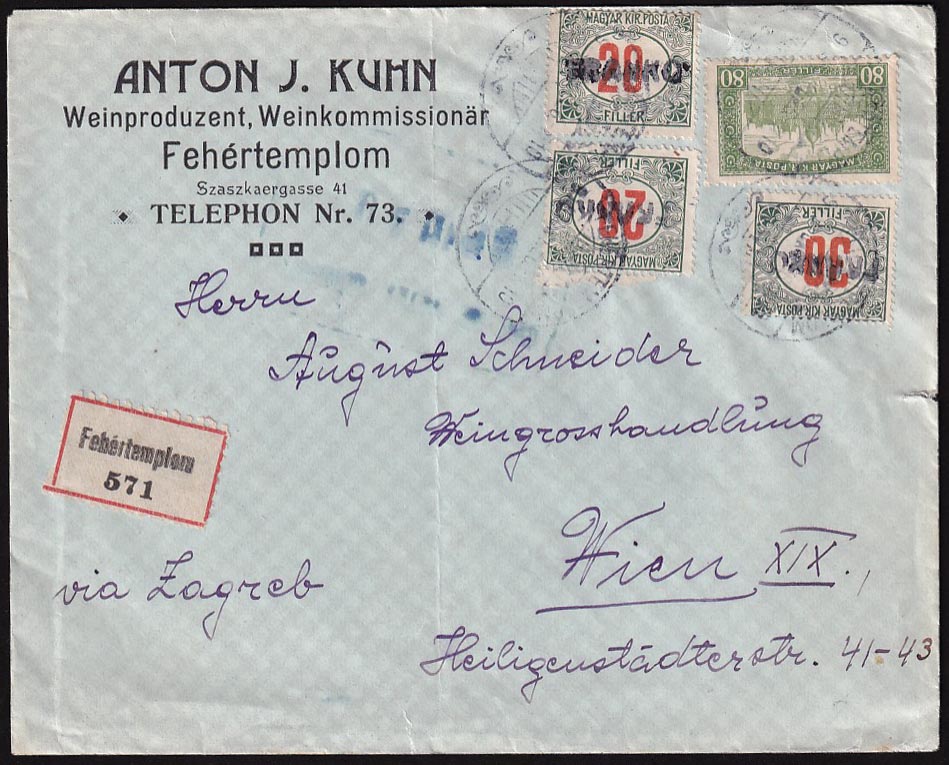 ANTON J. KUHN
Weinproduzent, Weinkommissionär
Fehértemplom
Szaszkaergasse 41
TELEPHON Nr. 73.
MAGYAR KIR. POSTA
20
FILLÉR
FRANKO
MAGYAR KIR. POSTA
20
FILLÉR
80 80
MAGYAR KIR. POSTA
MAGYAR KIR. POSTA
30
FILLÉR
Herrn
August Schneider
Weingrosshandlung
Fehértemplom
571
Wien XIX.,
via Zagreb
Heiligenstädterstr. 41-43